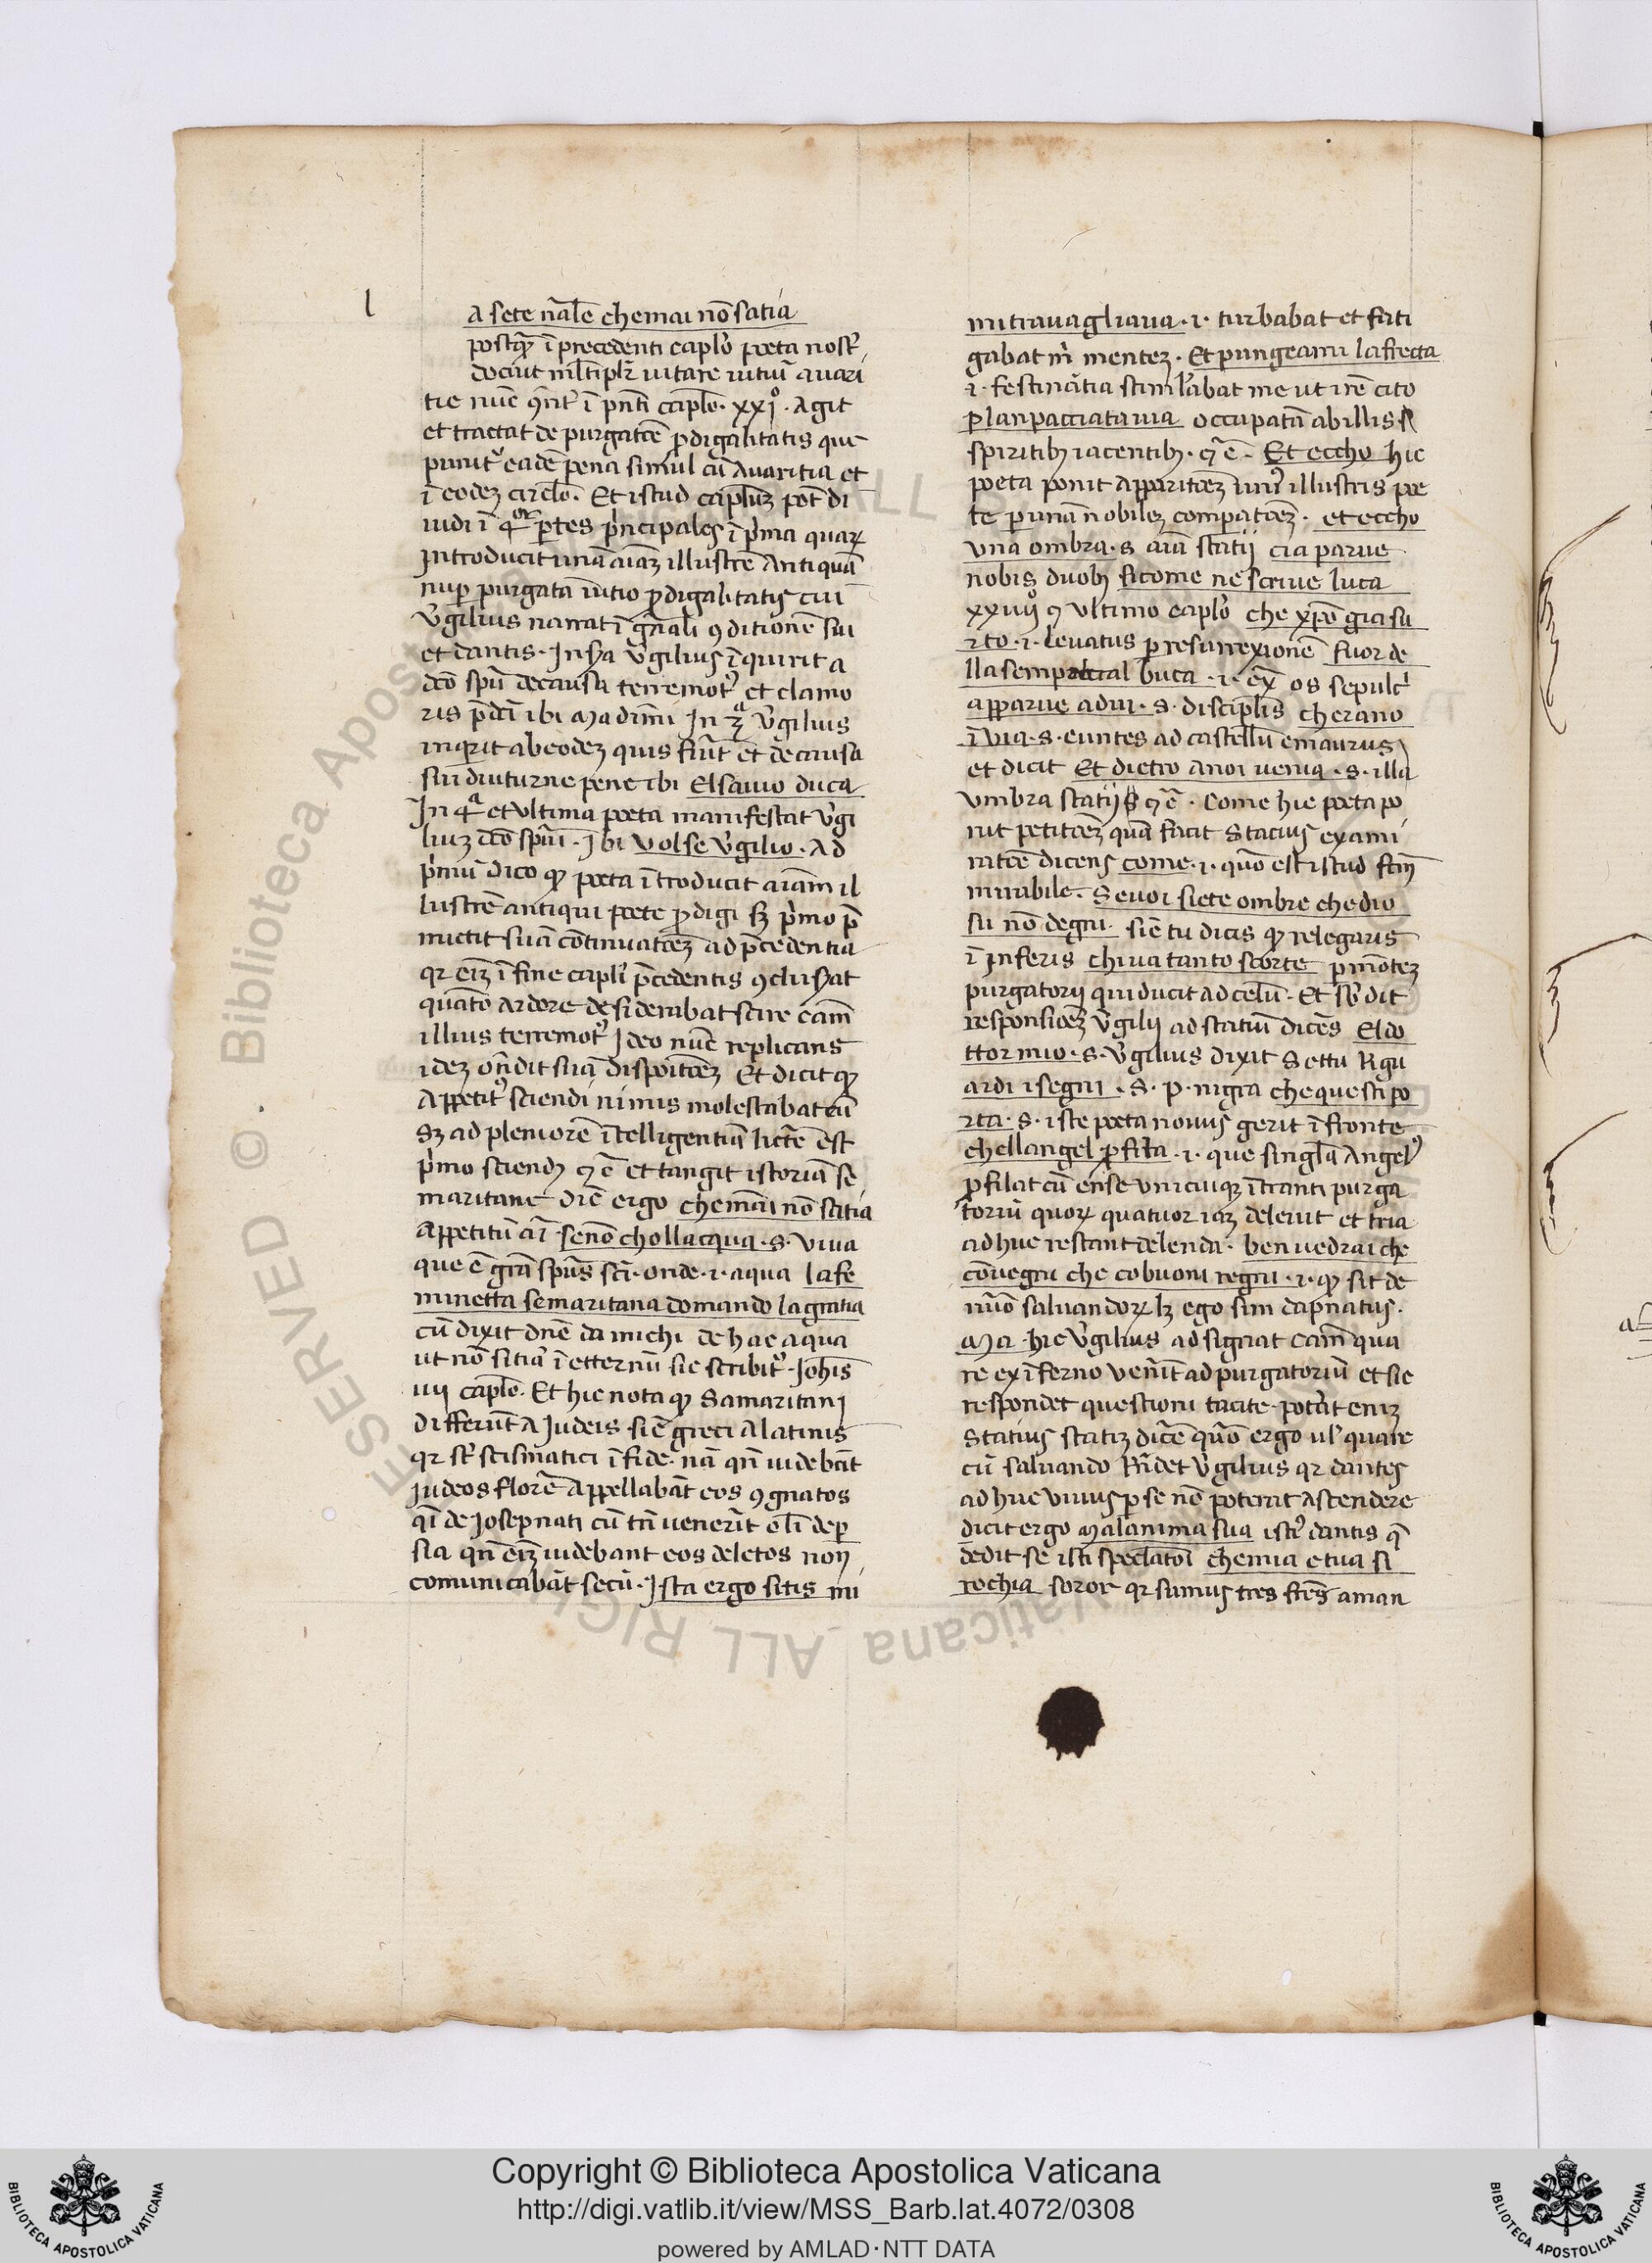 l
a sete nãle che mai nõ satia
postq̃ ĩ precedenti caplo poeta nost̃
docuit mltiplr̃ vitare vitiũ avari
tie nũc ꝯñr ĩ pñti caplo. xxjº. Agit
et tractat de purgatõe ꝓdigalitatis que
punit᷑ eadẽ pena simul cũ avaritia et
ĩ eodeȝ circlo. Et istud caplũȝ pot̃ di
vidi ĩ 4or ꝑtes p̃ncipales ĩ p̃ma quaꝝ
introducit unã aĩaȝ illustrẽ antiquã
nuꝑ purgatã vitio ꝓdigalitatis cui
Vg̃ilius narrat ĩ gñali ꝯditionẽ sui
et dantis. In sã Vg̃ilius ĩquirit a
dc̃o spũ de causa terremot᷑ et clamo
ris p̃dc̃i ibi Ma dimmi In 3ª Vg̃ilius
inq̃rit ab eodeȝ quis fũit et de causa
sui diuturne pene ibi El savio duca
In 4ª et ultima poeta manifestat Vg̃i
liuȝ dc̃o spũi. Ibi Volse Vg̃ilio. Ad
p̃mũ dico ꝙ poeta ĩtroducit aĩam il
lustrẽ antiqui poete ꝓdigi sȝ p̃mo p̃
mictit suã cõtinuatõeȝ ad p̃cedentia
qr eĩȝ ĩ fine capli p̃cedentis ꝯclusat
quãto ardore desiderabat scire cãm
illius terremot᷑ Ideo nũc replicans
ideȝ oñdit suã dispoitõeȝ Et dicit ꝙ
appetit᷑ sciendi nimis molestabat eũ
Sȝ ad pleniorẽ ĩtelligentiã lictr̃e est
p̃mo sciendȝ ꝙ ẽ et tangit istoriã se
maritane dic̃ ergo che mai nõ satia
appetitũ aĩ senõ cholla cqua .s. viva
que ẽ grã spũs sc̃i. onde .i. aqua la fe
minetta semaritana domando la gratia
cũ dixit dñe da michi de hac aqua
ut nõ sitiã ĩ etternũ sic scribit᷑. Johis
iiij caplo. Et hic nota ꝙ Samaritani
differũt a Judeis sic̃ greci a latinis
qr st̃ scismatici ĩ fide. nã qñ videbãt
Judeos florẽ appellabãt eos ꝯgnatos
q̃i de Josep nati cũ tñ venerĩt olĩ de ꝑ
sia qñ eĩȝ videbant eos deletos non
comunicabãt secũ. Ista ergo sitis mi
mi travagliava .i. turbabat et fati
gabat m̃ menteȝ. Et pungeami la frecta
.i. festinãtia stimlabat me ut irẽ cito
ꝑ lanpacciata via occupatã ab illis
spiritibȝ iacentibȝ. ꝙ ẽ. Et eccho hic
poeta ponit apparitõeȝ uni᷑ illustris poe
te ꝑ unã nobileȝ comparatõeȝ. et eccho
una ombra .s. aĩa statij cia parve
nobis duobȝ sicome ne scrive luca
xxiiijº ꝯ ultimo caplo che xp̃o gia su
rto .i. levatus ꝑ resurrexionẽ fuor de
lla sempalcral buca .i. ex̃ os sepulc̃
apparve a dui .s. disciplis cherano
ĩ via .s. euntes ad castellũ emaurus
et dicit Et dietro a noi venia .s. illa
umbra statij ꝙ ẽ. Come hic poeta po
nit petitõeȝ quã facit Stacius exami
natõe dicens come .i. quõ est istud fcm̃
mirabile. Se voi siete ombre che dio
su nõ degni. sic̃ tu dicis ꝙ relegaris
ĩ inferis chi va tanto scorte ꝑ mõteȝ
purgatorij qui ducit ad celũ. Et sb̃dit
responsiõeȝ Vg̃ilij ad statiũ dicẽs El do
ttor mio .s. Vg̃ilius dixit Se ttu Rigu
ardi i segni .s. p. nigra che questi po
rta .s. iste poeta novus gerit ĩ fronte
che llangel ꝓfila .i. que singla Angel᷑
ꝓfilat cũ ense unicuiqȝ ĩtranti purga
toriũ quoꝝ quatuor iaȝ delevit et tria
ad huc restant delenda. ben vedrai che
cõvegni che co buoni regni .i. ꝙ sit de
nũo salvandoꝝ lȝ ego sim dapnatus.
Ma hic Vg̃ilius adsignat cãm qua
re ex ĩferno venit ad purgatoriũ et sic
respondet questioni tacite. potũit eniȝ
Statius statiȝ dic̃e quõ ergo ul᷑ quare
cũ salvando Rñdet Vg̃ilius qr dantes
ad huc vivus ꝑ se nõ poterat ascendere
dicit ergo Malanima sua isti᷑ dantis q̃
dedit se isti speclatõi che mia e tua si
rochia soror qr sumus tres frẽs aman
Copyright © Biblioteca Apostolica Vaticana
http://digi.vatlib.it/view/MSS_Barb.lat.4072/0308
powered by AMLAD·NTT DATA
BIBLIOTECA APOSTOLICA VATICANA
BIBLIOTECA APOSTOLICA VATICANA